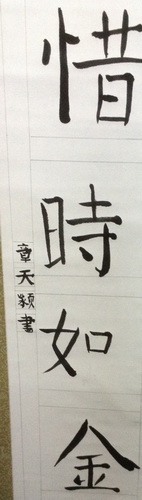 惜時如金
章天潁書